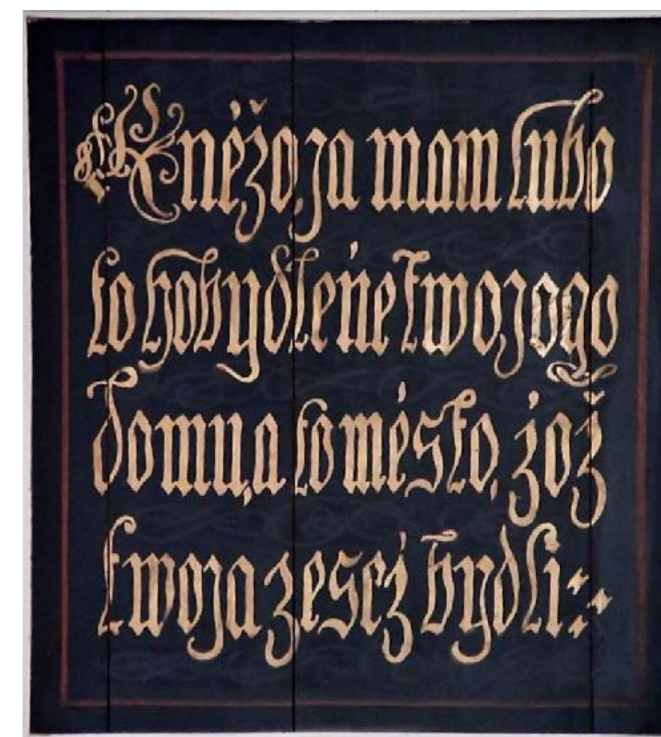 Knéžo, ja mam lubo
to hobydleńe twojogo
domu, a to mésto, źož
twoja zescź bydli: